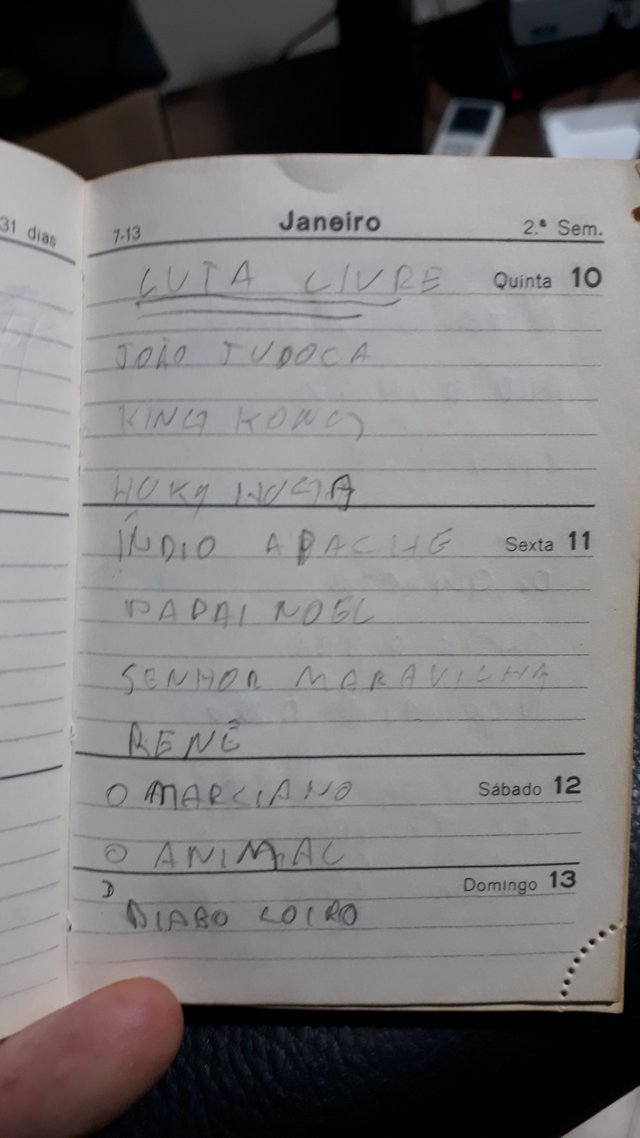 31 dias
7-13 Janeiro 2.ª Sem.
LUTA LIVRE Quinta 10
JOÃO JUDOCA
KING KONG
HUKY
ÍNDIO APACHE Sexta 11
PAPAI NOEL
SENHOR MARAVILHA
RENÊ
O MARCIANO Sábado 12
O ANIMAL
D Domingo 13
DIABO LOIRO